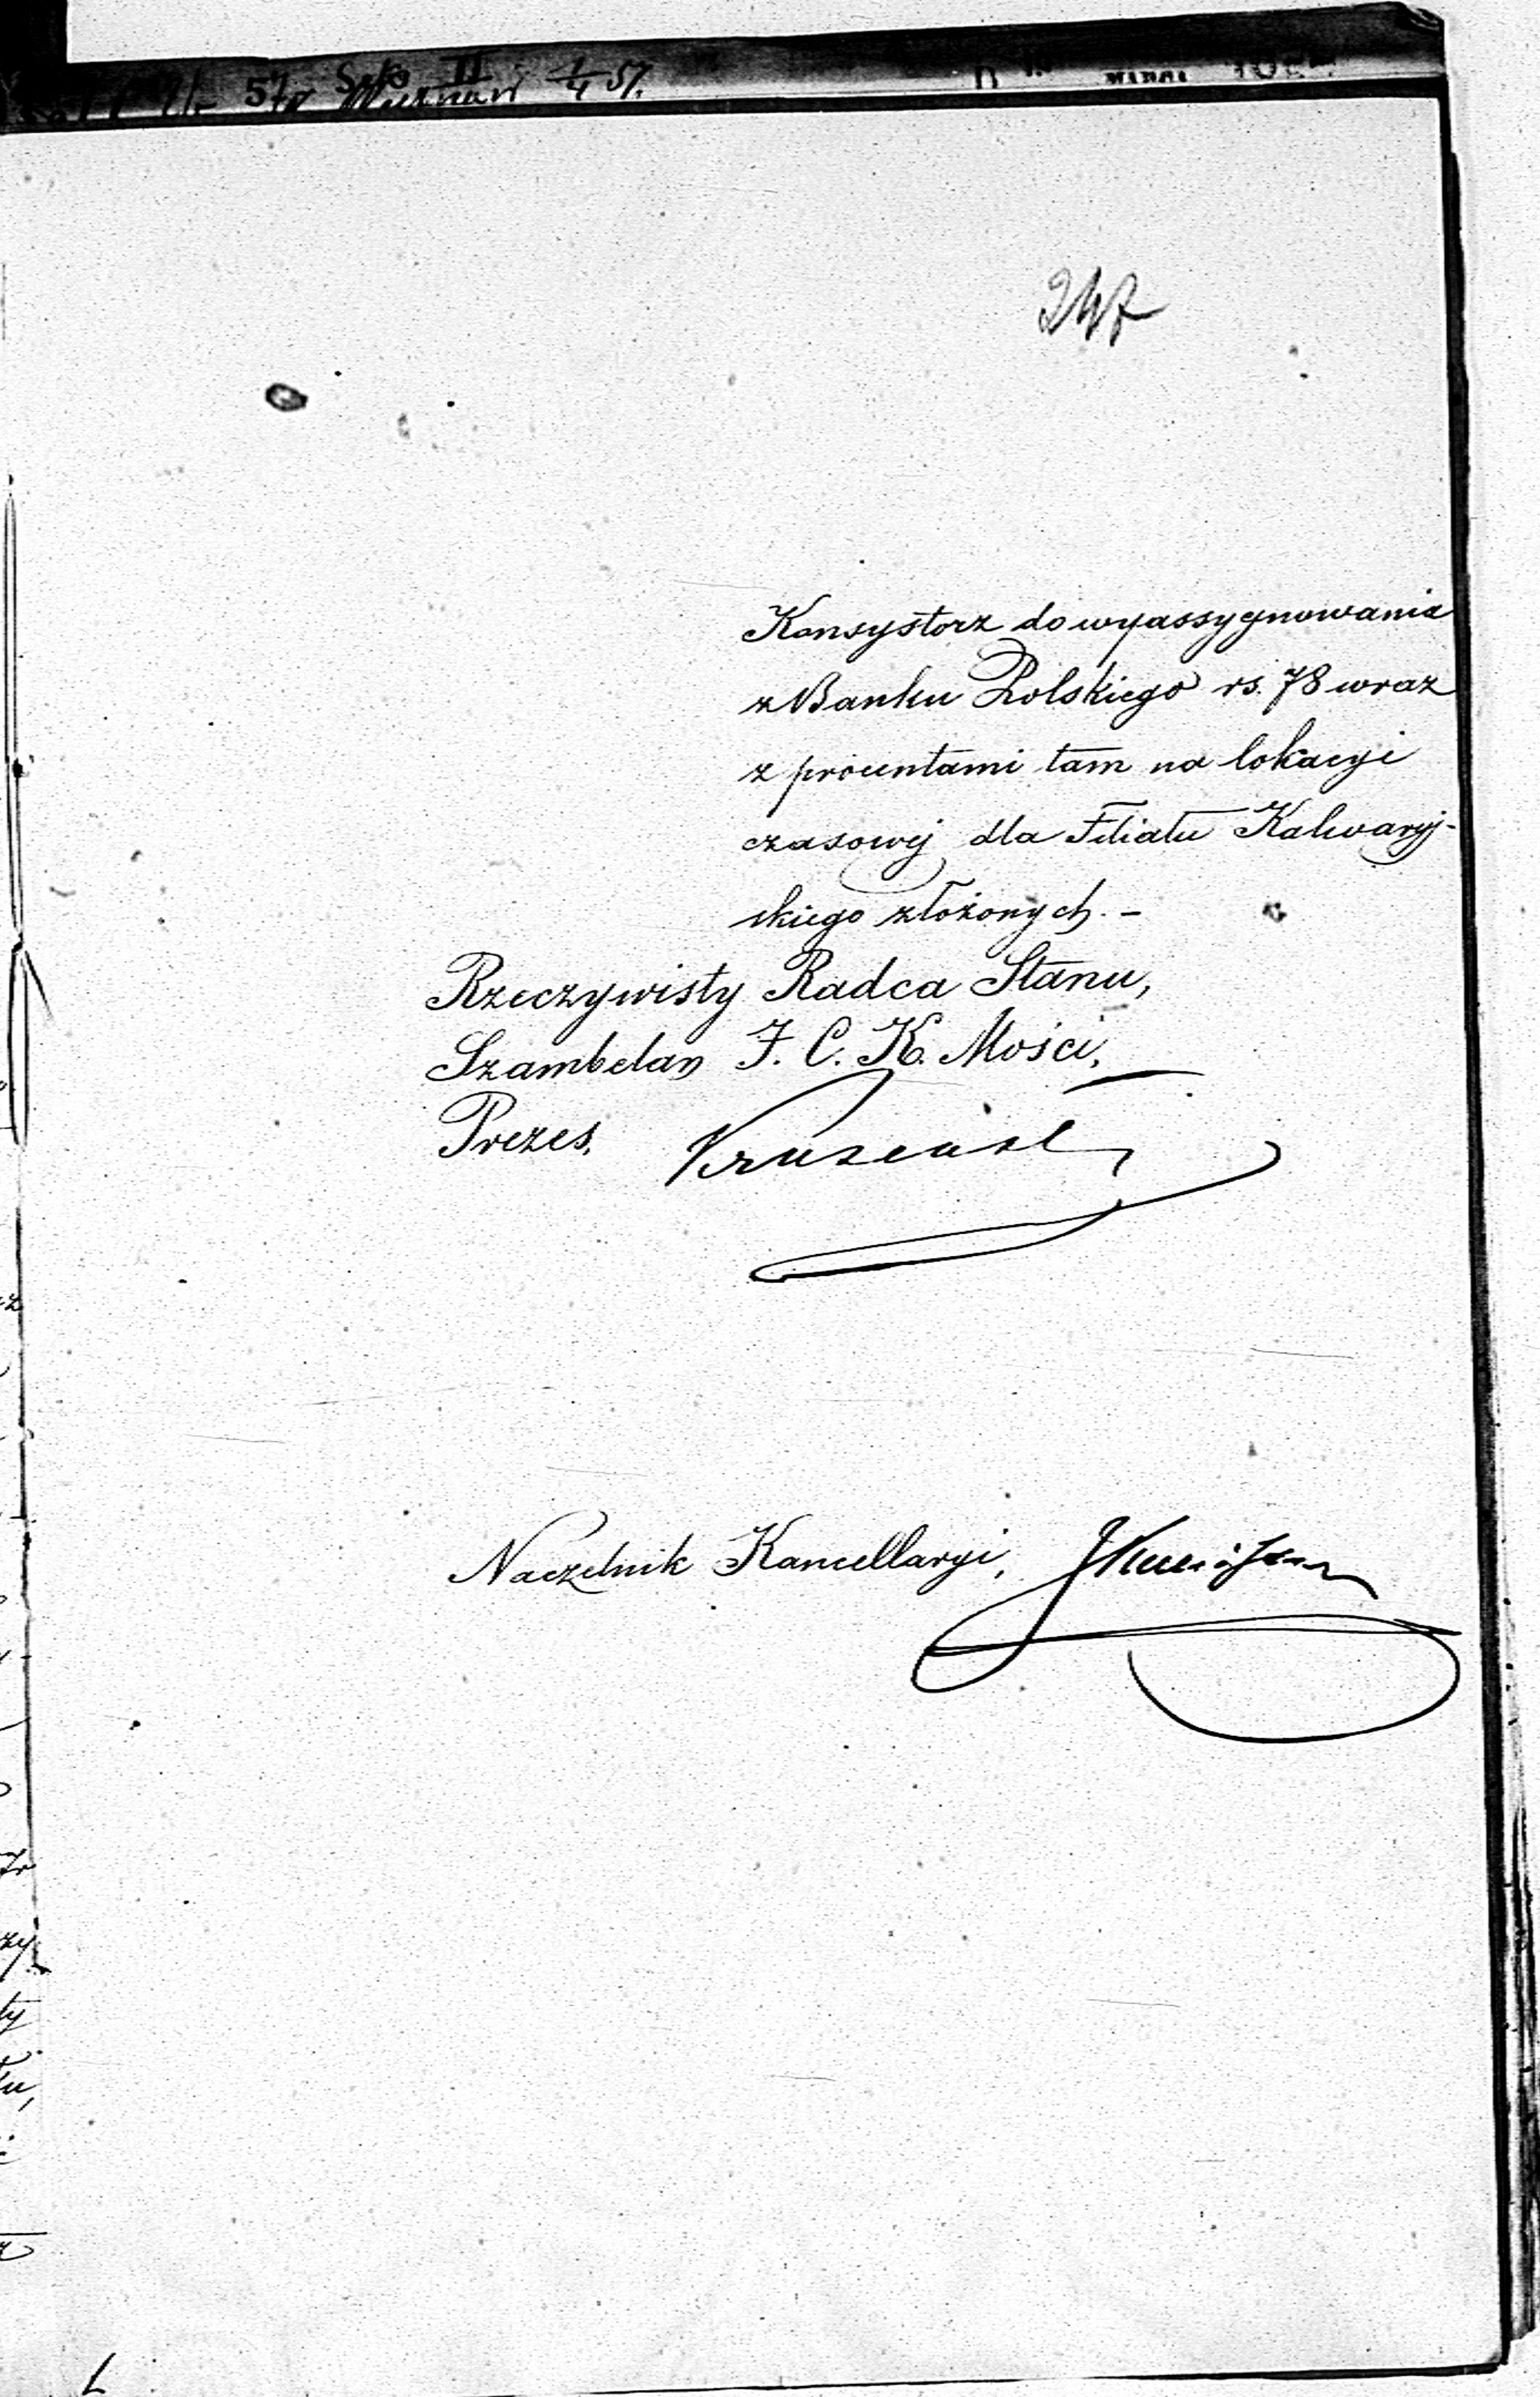 247
Konsystorz do wyassygnowania
z Banku Polskiego rs. 78 wraz
z procentami tam na lokacyi
czasowej dla Filiału Kalwaryj-
skiego złożonych. -
Rzeczywisty Radca Stanu,
Szambelan J. C. K. Mości,
Prezes,
Naczelnik Kancellaryi,